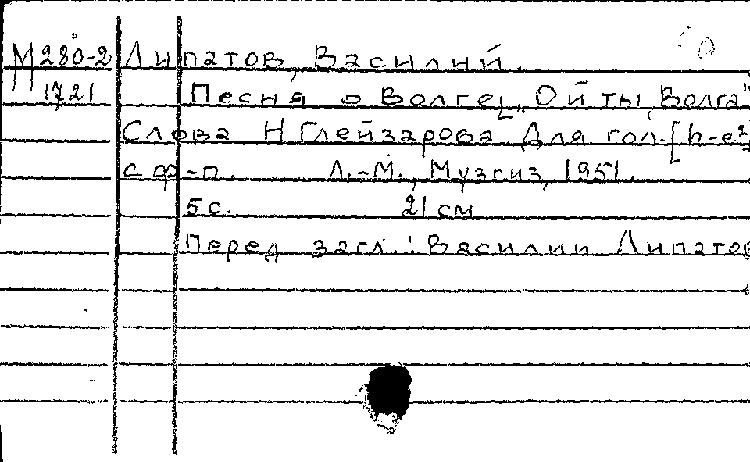 М 280-2 Липатов, Василий.
1721 Песня о Волге [„Ой ты, Волга"
Слова Н Глейзарова Для гол. [h-e²]
с ф-п. Л.-М., Музгиз, 1951.
5 с. 21 см
Перед загл.: Василий Липатов